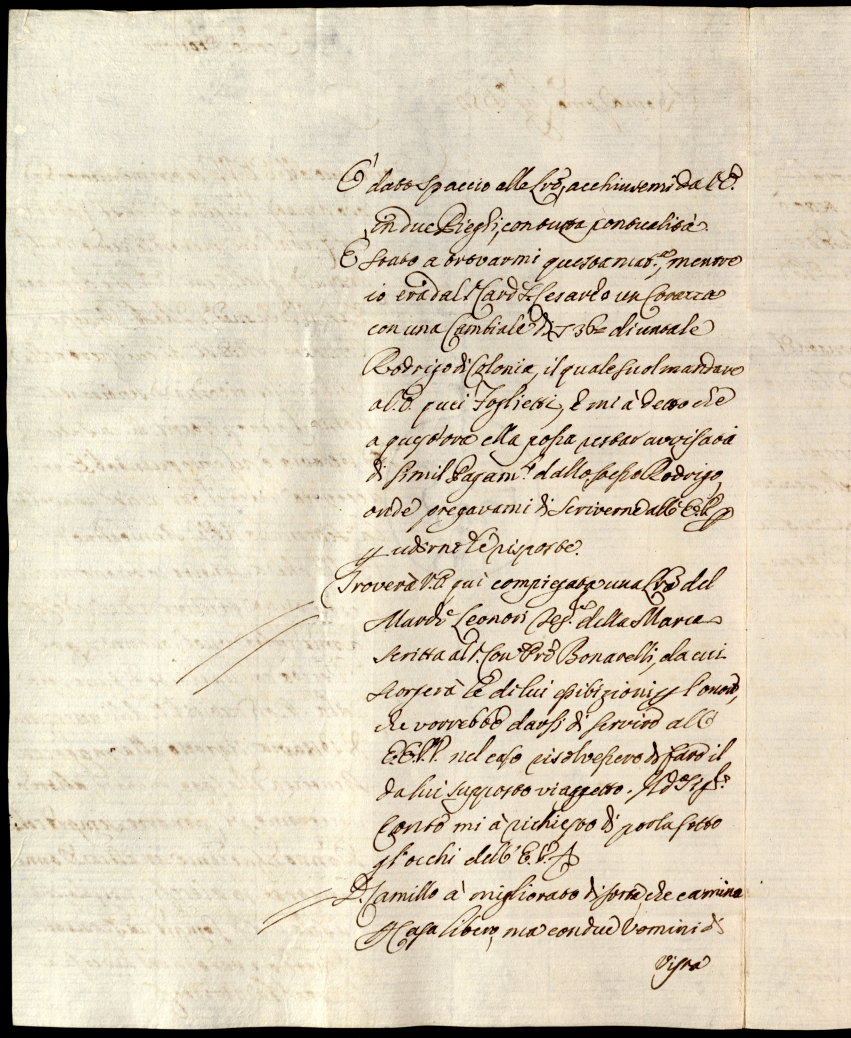 È dato spaccio alle Lrẽ, acchiusemi da V.E.
in due Pieghi, con tutta pontualità.
È stato a trovarmi questa matt.ª, mentre
io era dal S.r Card.
con una Cambiale di 36 di un tale
Rodrigo di Colonia, il quale suol mandare
a V.E. quei Foglietti, e mi à detto che
a quest'ora ella possa restar avvisata
di simil Pagam.to dallo stesso Rodrigo,
onde pregavami di scriverne all'E.V. p
p udirne le risposte.
Troverà V.E. qui compiegata una Lrã del
March.e Leonori Seg.º della Marca
scritta al S.r Bonarelli, da cui
scorgerà le di lui esibizioni p l'onore,
che vorrebbe darsi di servire all'
E.E. V.V. nel caso risolvessero di fare il
da lui supposto viaggetto. Ad.º S.r
Conte mi à richiesto di porla sotto
gl'occhi dell'E.V.
D. Camillo à migliorato di sorte, che camina
p Casa libero, ma con due Uomini di
vista